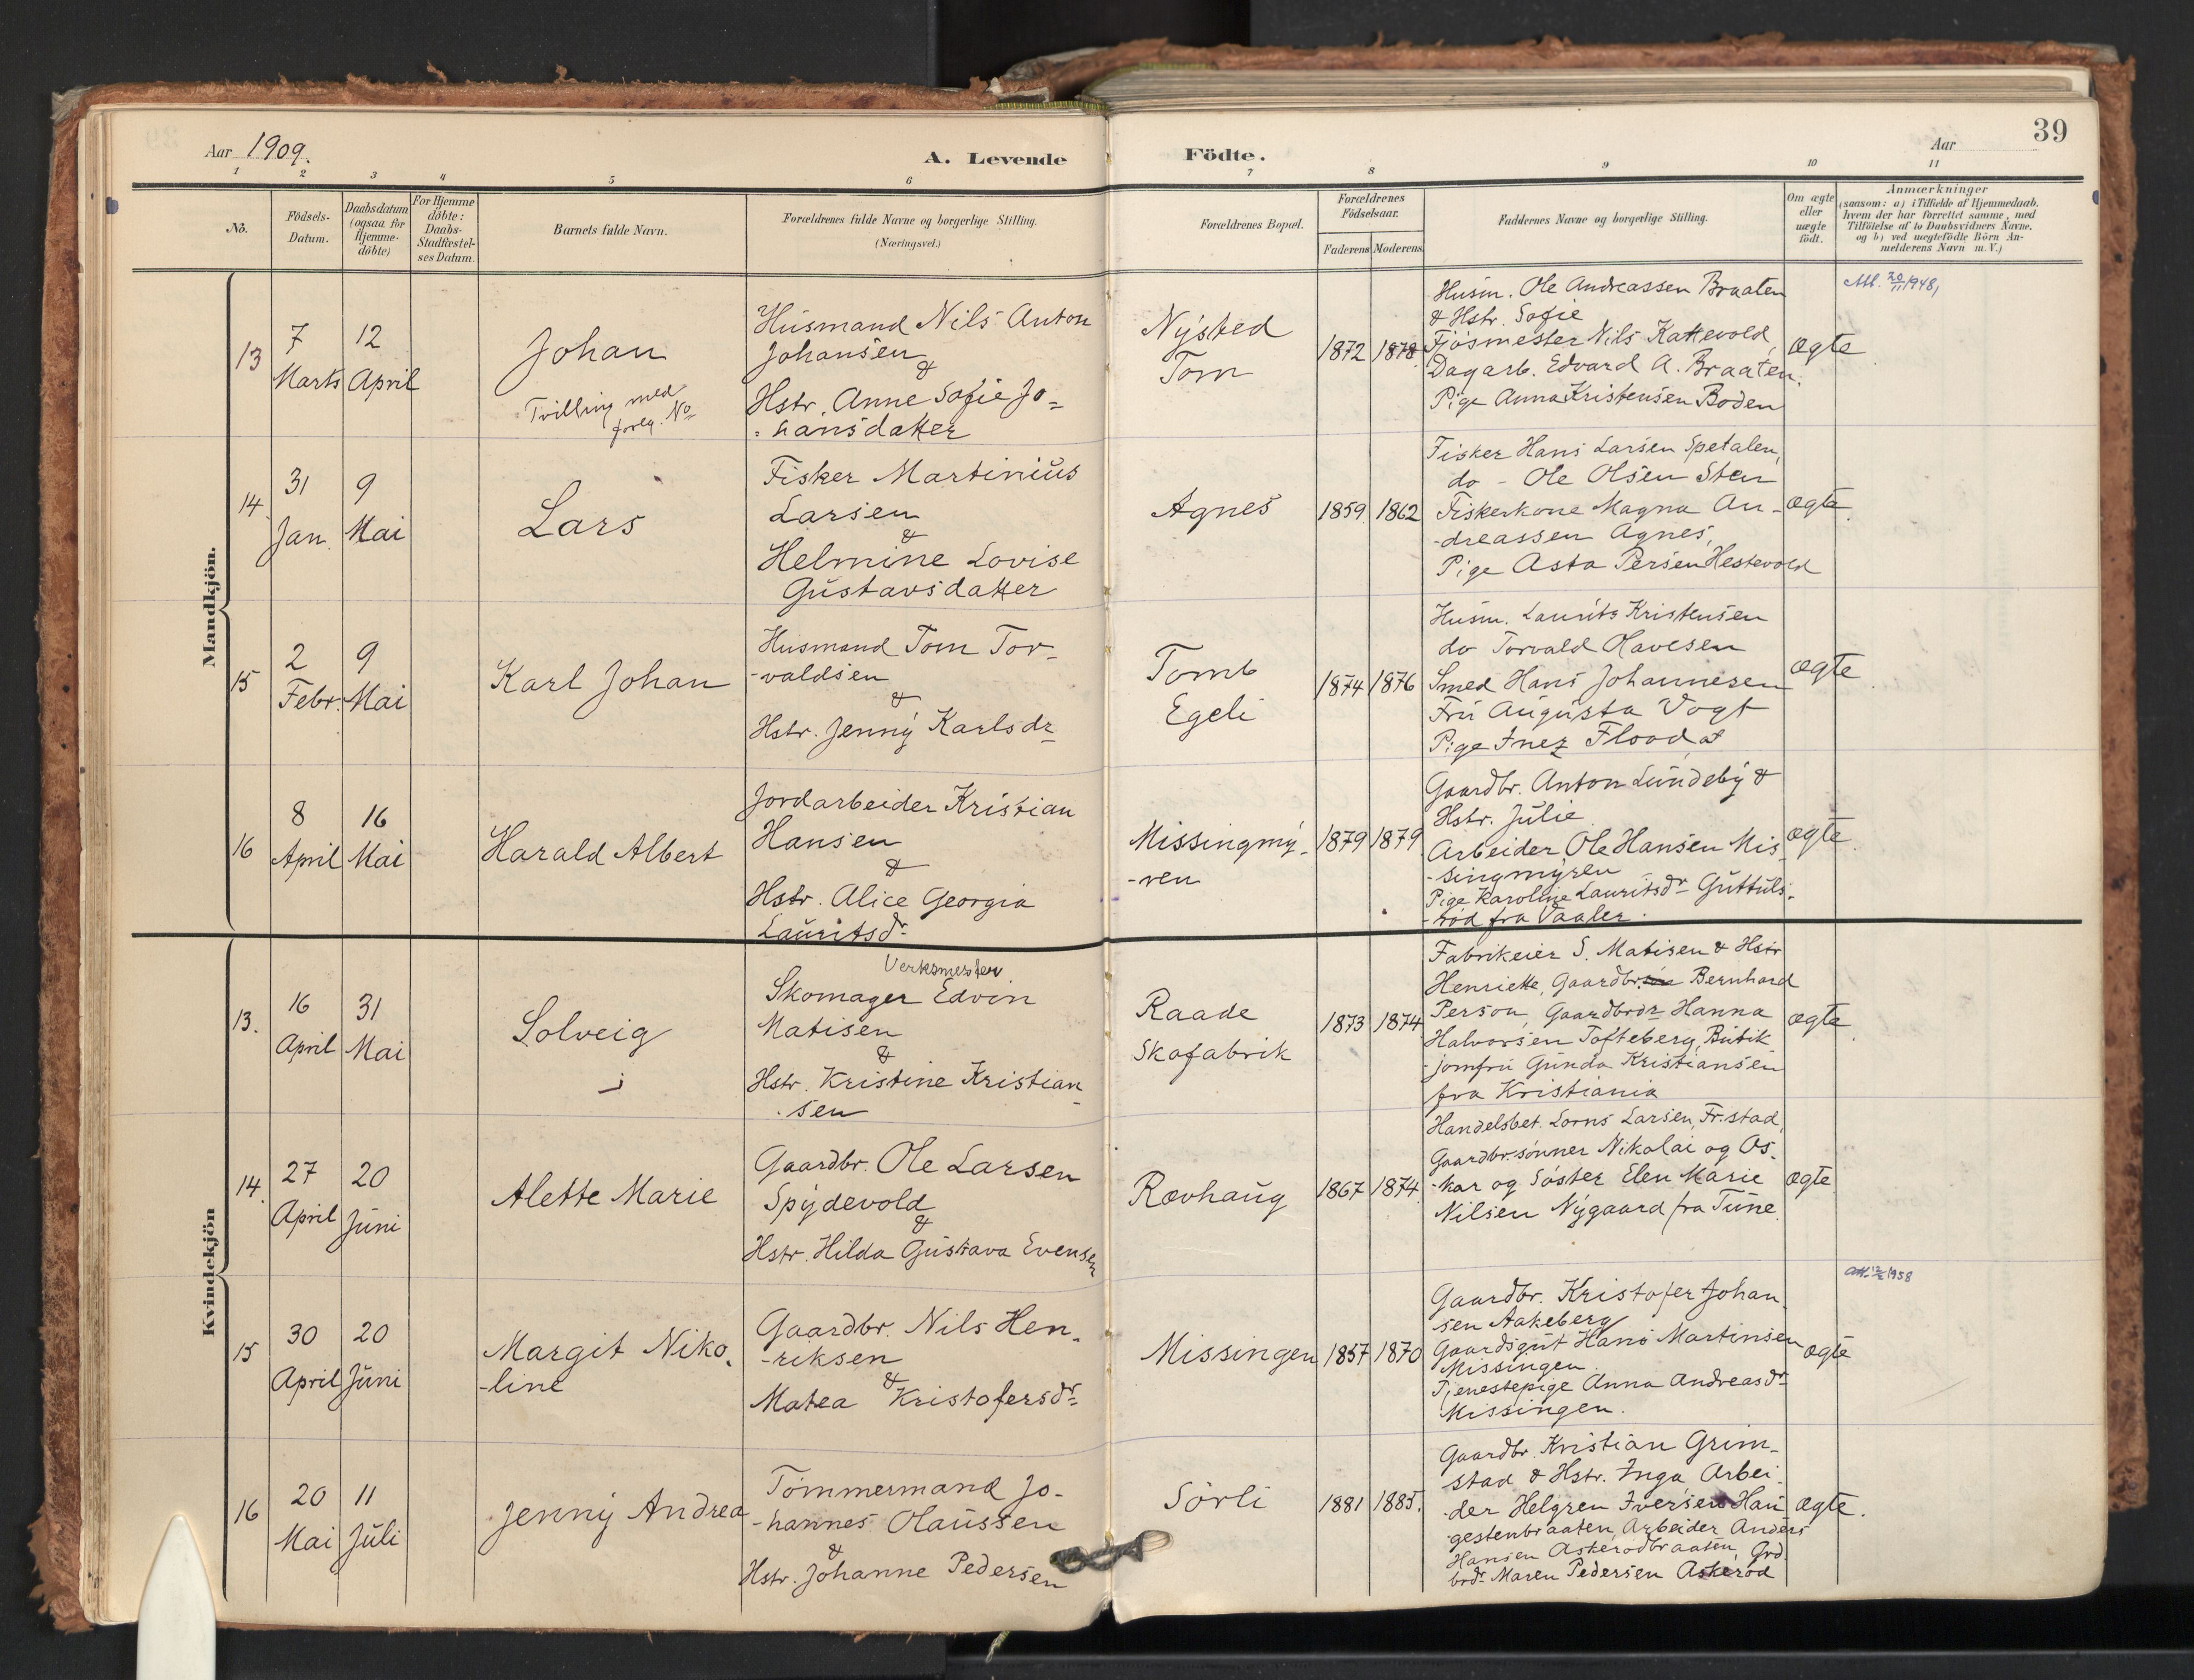 39
Aar 1909.
A. Levende
Födte.
Aar
1 2 3 4 5 6 7 8 9 10 11
No.
Födsels-
Datum.
Daabsdatum
(ogsaa for
Hjemme-
döbte)
For Hjemme
döbte:
Daabs-
Stadfæstel-
ses Datum.
Barnets fulde Navn.
Forældrenes fulde Navne og borgerlige Stilling.
(Næringsvei.)
Forældrenes Bopæl.
Forældrenes
Födselsaar.
Faderens Moderens
Faddernes Navne og borgerlige Stilling.
Om ægte
eller
uægte
födt.
Anmærkninger
(saasom: a) i Tilfælde af Hjemmedaab.
hvem der har forrettet samme, med
Tilföielse af to Daabsvidners Navne.
og b) ved uægtefödte Börn An-
melderens Navn m. V.)
Mandkjön.
13
7
Marts
12
April
Johan
Tvilling med
forrg. No
Husmand Nils Anton
Johansen
&
Hstr. Anne Sofie Jo=
=hansdatter
Nysted
Tom
1872
1878
Husm. Ole Andreassen Braaten
& Hstr. Sofie
Fjösmester Nils Kattevold,
Dagarb. Edvard A. Braaten.
Pige Anna Kristensen Boden
ægte
Att. 20/11 1948,
14
31
Jan.
9
Mai
Lars
Fisker Martinius
Larsen
&
Helmine Lovise
Gustavsdatter
Agnes
1859
1862
Fisker Hans Larsen Spetalen,
do - Ole Olsen Sten
Fiskerkone Magna An-
-dreassen Agnes,
Pige Asta Persen Hestevold
ægte.
15
2
Febr.
9
Mai
Karl Johan
Husmand Tom Tor-
-valdsen
&
Hstr. Jenny Karlsdr
Tomb
Egeli
1874
1876
Husm. Laurits Kristensen
do Torvald Olavesen
Smed Hans Johannesen
Fru Augusta Vogt
Pige Inez Flood
ægte
16
8
April
16
Mai
Harald Albert
Jordarbeider Kristian
Hansen
&
Hstr. Alice Georgia
Lauritsdr
Missingmy-
-ren
1879
1879
Gaardbr. Anton Lundeby &
Hstr. Julie
Arbeider Ole Hansen Mis-
-singmyren
Pige Karoline Lauritsdr Guttuls-
-röd fra Vaaler.
ægte.
Kvindekjön
13.
16
April
31
Mai
Solveig
Verksmester
Skomager Edvin
Matisen
&
Hstr. Kristine Kristian-
-sen
Raade
Skofabrik
1873
1874
Fabrikeier S. Matisen & Hstr
Henriette, Gaardbr. Bernhard
Person, Gaardbrdr Hanna
Halvorsen Tofteberg, Butik
-jomfru Gunda Kristiansen
fra Kristiania
ægte.
14.
27
April
20
Juni
Alette Marie
Gaardbr. Ole Larsen
Spydevold
&
Hstr. Hilda Gustava Evensen
Rævhaug
1867
1874
Handelsbet. Lorns Larsen, Fr.stad,
Gaardbr.sönner Nikolai og Os-
-kar og Söster Elen Marie
Nilsen Nygaard fra Tune.
ægte
15
30
April
20
Juni
Margit Niko-
-line
Gaardbr. Nils Hen-
-riksen
&
Matea Kristofersdr
Missingen
1857
1870
Gaardbr. Kristofer Johan-
sen Aakeberg
Gaardsgut Hans Martinsen
Missingen.
Tjenestepige Anna Andreasdr
Missingen.
ægte
1958
16
20
Mai
11
Juli
Jenny Andrea
Tömmermand Jo-
-hannes Olaussen
&
Hstr. Johanne Pedersen
Sörli
1881
1885.
Gaardbr. Kristian Grim-
stad & Hstr. Inga Arbei-
-der Helgren Iversen Hau
-gestenbraaten, Arbeider Anders
Hansen Askerödbraaten, Grd.
brdr Maren Pedersen Askeröd
ægte.